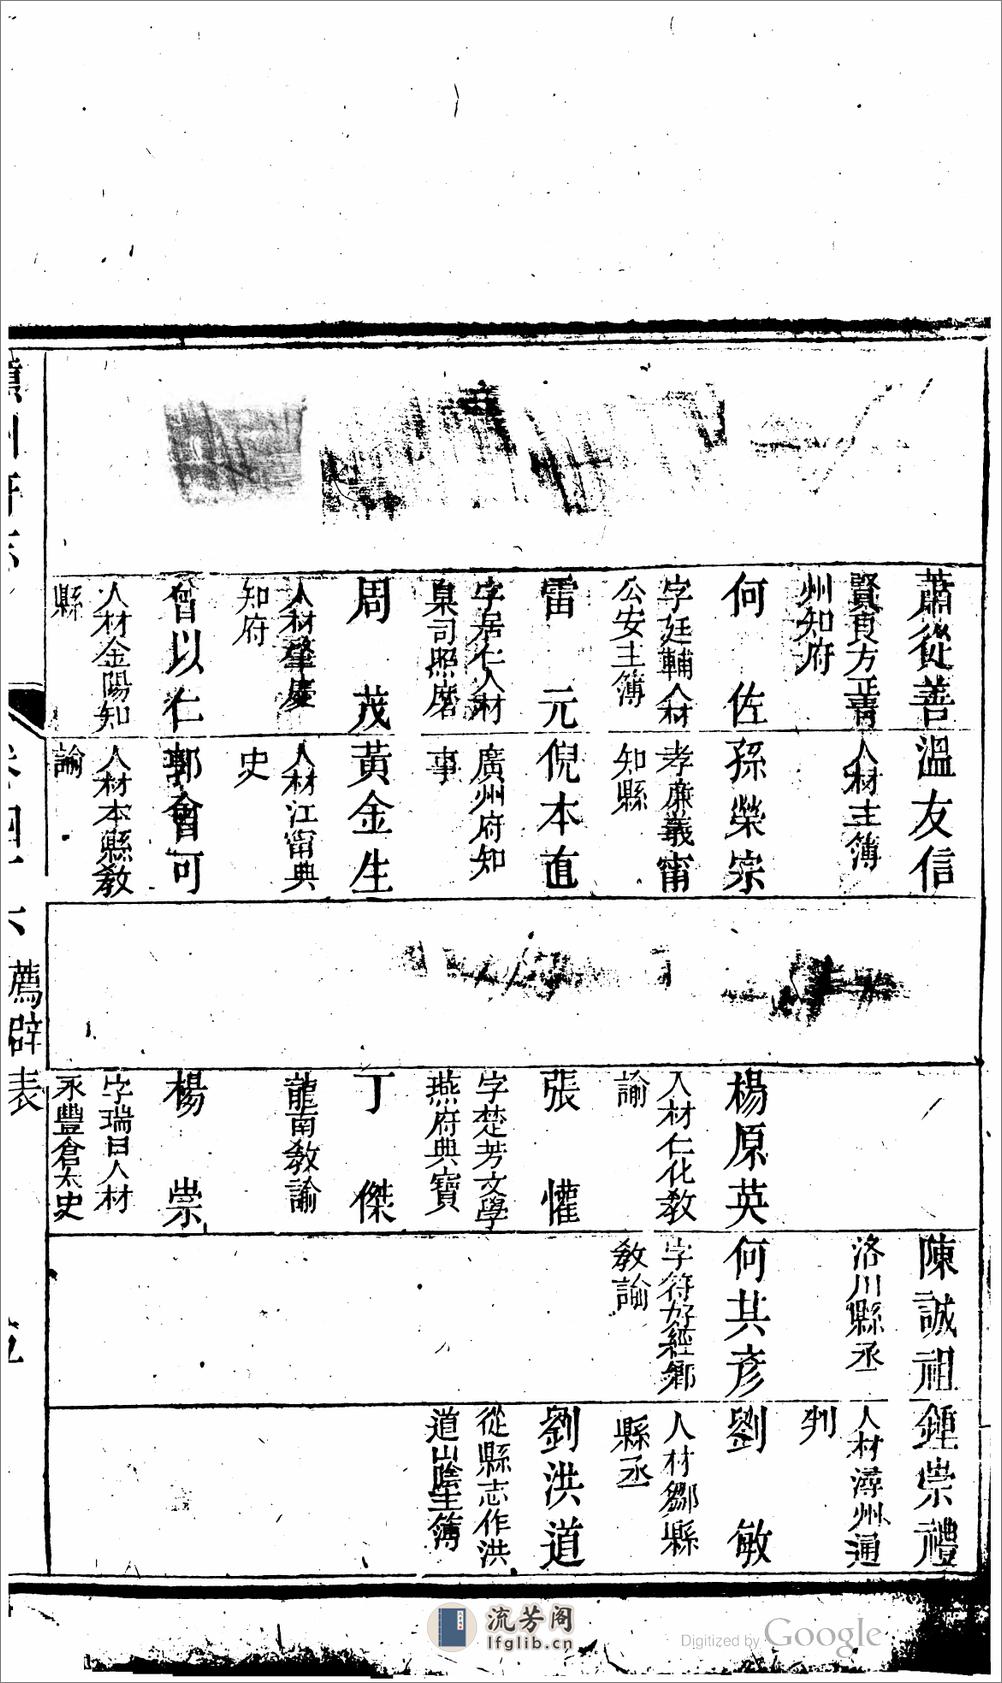 蕭從善
賢良方正青
州知府
何佐
字廷輔人材
公安主簿
雷元
字居仁人材
臬司照磨
周茂
人材肇慶
知府
曾以仁
人材金陽知
縣
溫友信
人材主簿
孫榮宗
孝廉義甯
知縣
倪本直
廣州府知
事
黃金生
人材江甯典
史
郭會可
人材本縣教
諭
楊原英
人材仁化教
諭
張懽
字楚芳文學
燕府典寶
丁傑
龍南教諭
楊崇
字瑞日人材
永豐倉大史
陳誠祖
洛川縣丞
何其彥
字符好經鄉
教諭
鍾崇禮
人材潯州通
判
劉敏
人材鄒縣
縣丞
劉洪道
從縣志作洪
道山陰主簿
薦辟表
流芳阁
lfglib.cn
Digitized by Google